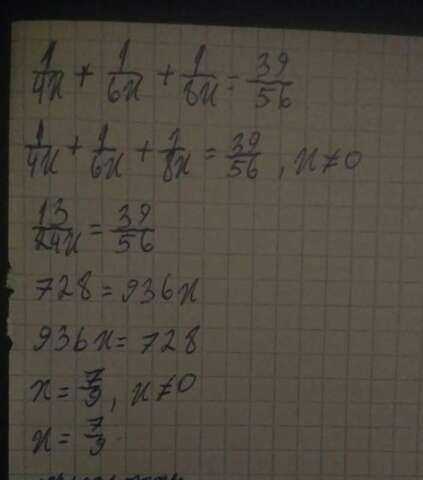 1/4x + 1/6x + 1/8x = 39/56
1/4x + 1/6x + 1/8x = 39/56, x≠0
13/24x = 39/56
728 = 936x
936x = 728
x = 7/9, x≠0
x = 7/9